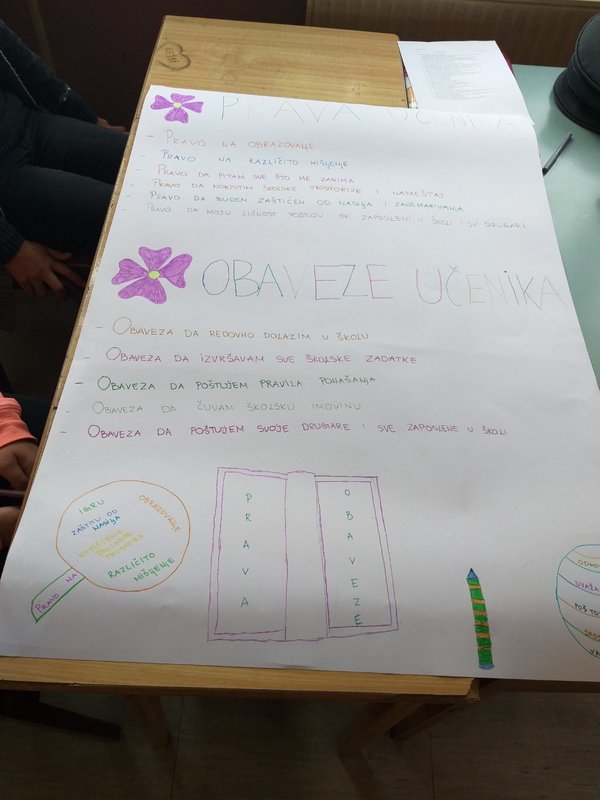 PRAVA UČENIKA
- PRAVO NA OBRAZOVANJE
- PRAVO NA RAZLIČITO MIŠLJENJE
- PRAVO DA PITAM SVE ŠTO ME ZANIMA
- PRAVO DA KORISTIM ŠKOLSKE PROSTORIJE I NAMEŠTAJ
- PRAVO DA BUDEM ZAŠTIĆEN OD NASILJA I ZANEMARIVANJA
- PRAVO DA MOJU LIČNOST POŠTUJU SVI ZAPOSLENI U ŠKOLI I SVI DRUGARI
OBAVEZE UČENIKA
- OBAVEZA DA REDOVNO DOLAZIM U ŠKOLU
- OBAVEZA DA IZVRŠAVAM SVE ŠKOLSKE ZADATKE
- OBAVEZA DA POŠTUJEM PRAVILA PONAŠANJA
- OBAVEZA DA ČUVAM ŠKOLSKU IMOVINU
- OBAVEZA DA POŠTUJEM SVOJE DRUGARE I SVE ZAPOSLENE U ŠKOLI
PRAVO NA
IGRU
OBRAZOVANJE
ZAŠTITU OD
NASILJA
KORIŠĆENJE
ŠKOLSKOG
PROSTORA
RAZLIČITO
MIŠLJENJE
PRAVA
OBAVEZE
UVAŽA
POŠTO